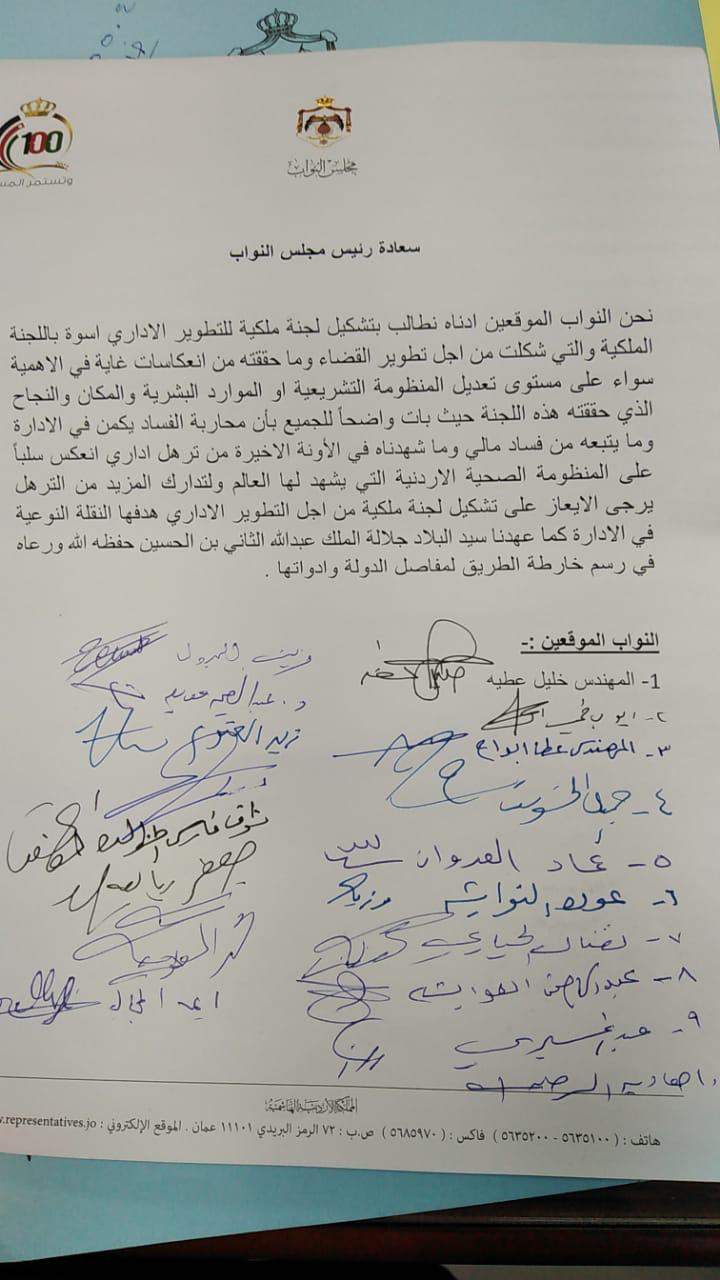 100
وتستمر
مجلس النواب
سعادة رئيس مجلس النواب
نحن النواب الموقعين ادناه نطالب بتشكيل لجنة ملكية للتطوير الاداري اسوة باللجنة
الملكية والتي شكلت من اجل تطوير القضاء وما حققته من انعكاسات غاية في الاهمية
سواء على مستوى تعديل المنظومة التشريعية او الموارد البشرية والمكان والنجاح
الذي حققته هذه اللجنة حيث بات واضحاً للجميع بأن محاربة الفساد يكمن في الادارة
وما يتبعه من فساد مالي وما شهدناه في الأونة الاخيرة من ترهل اداري انعكس سلباً
على المنظومة الصحية الاردنية التي يشهد لها العالم ولتدارك المزيد من الترهل
يرجى الايعاز على تشكيل لجنة ملكية من اجل التطوير الاداري هدفها النقلة النوعية
في الادارة كما عهدنا سيد البلاد جلالة الملك عبدالله الثاني بن الحسين حفظه الله ورعاه
في رسم خارطة الطريق لمفاصل الدولة وادواتها .
النواب الموقعين :-
1- المهندس خليل عطيه
٢- ايوب
٣- المهندس عطا
٤-
٥- عماد العدوان
٦-
٧- نضال الحياري
٨-
٩-
زينب
د.
زيد العتوم
جعفر
المملكة الأردنية الهاشمية
هاتف : ( ٥٦٣٥١٠٠ - ٥٦٣٥٢٠٠ ) فاكس : ( ٥٦٨٥٩٧٠ ) ص.ب : ٧٢ الرمز البريدي ١١١٠١ عمان . الموقع الإلكتروني : w.representatives.jo